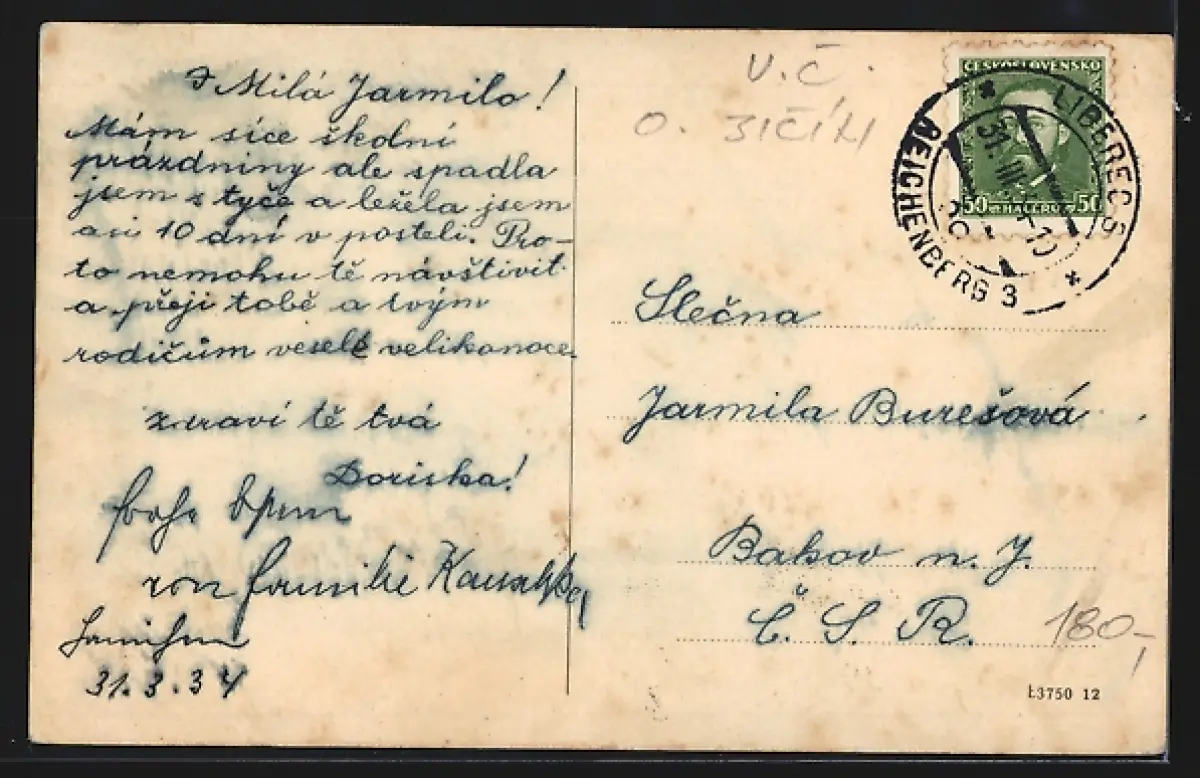 Milá Jarmilo!
Mám sice školní
prázdniny ale spadla
jsem s tyče a ležela jsem
asi 10 dní v posteli. Pro-
to nemohu tě návštivit
a přeji tobě a tvým
rodičům veselé velikonoce.
zdraví tě tvá
Doriska!
frohe
von familie
31.3.34
V.Č.
O. JIČÍN
ČESKOSLOVENSKO
50 HALÉŘŮ 50
LIBEREC
REICHENBERG 3
31. III
Slečna
Jarmila Burešová
Bakov n. J.
Č. S. R.
180,-
Ł3750 12